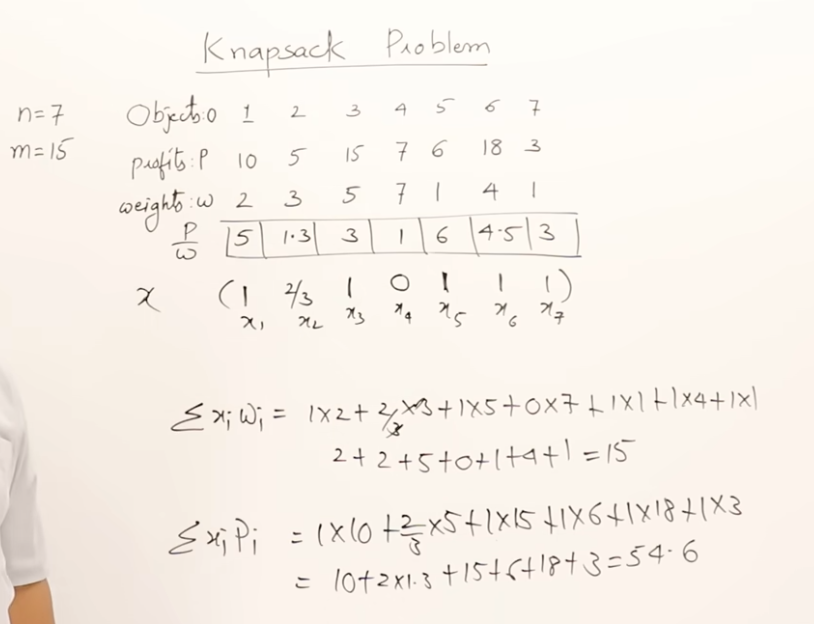 Knapsack Problem
n=7 Objects:O 1 2 3 4 5 6 7
m=15 profits:P 10 5 15 7 6 18 3
weights:w 2 3 5 7 1 4 1
P/w 5 1.3 3 1 6 4.5 3
x (1 2/3 1 0 1 1 1)
x₁ x₂ x₃ x₄ x₅ x₆ x₇
Σxᵢwᵢ = 1×2+2/3×3+1×5+0×7+1×1+1×4+1×1
2+2+5+0+1+4+1=15
ΣxᵢPᵢ = 1×10+2/3×5+1×15+1×6+1×18+1×3
= 10+2×1.3+15+6+18+3=54.6